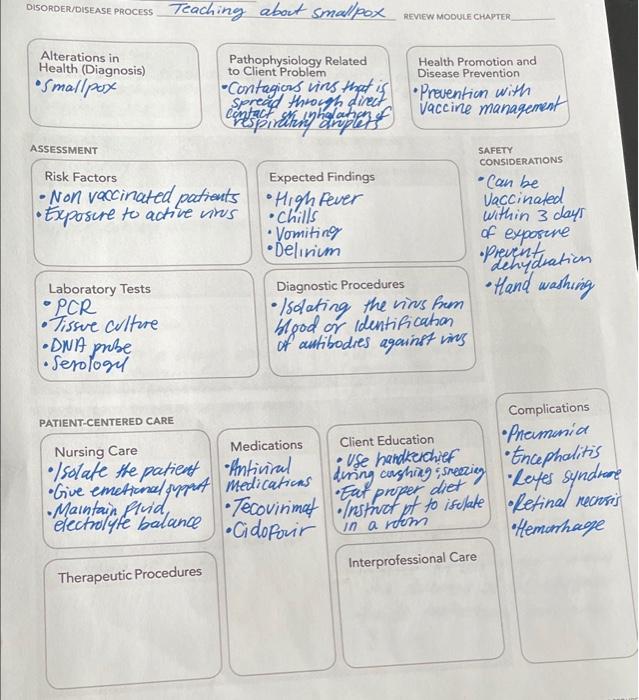 DISORDER/DISEASE PROCESS Teaching about smallpox REVIEW MODULE CHAPTER
Alterations in
Health (Diagnosis)
• Smallpox
Pathophysiology Related
to Client Problem
• Contagious virus that is
spread through direct
contact or inhalation of
respiratory droplets
Health Promotion and
Disease Prevention
• Prevention with
Vaccine management
ASSESSMENT
SAFETY
CONSIDERATIONS
• Can be
Vaccinated
within 3 days
of exposure
• Prevent
dehydration
• Hand washing
Risk Factors
• Non vaccinated patients
• Exposure to active virus
Expected Findings
• High Fever
• Chills
• Vomiting
• Delirium
Laboratory Tests
• PCR
• Tissue culture
• DNA probe
• Serology
Diagnostic Procedures
• Isolating the virus from
blood or Identification
of antibodies against virus
PATIENT-CENTERED CARE
Nursing Care
• Isolate the patient
• Give emotional support
• Maintain fluid,
electrolyte balance
Medications
• Antiviral
Medications
• Tecovirimat
• Cidofovir
Client Education
• Use handkerchief
during coughing; sneezing
• Eat proper diet
• Instruct pt to isolate
in a room
Complications
• Pneumonia
• Encephalitis
• Reyes syndrome
• Retinal necrosis
• Hemorrhage
Therapeutic Procedures
Interprofessional Care